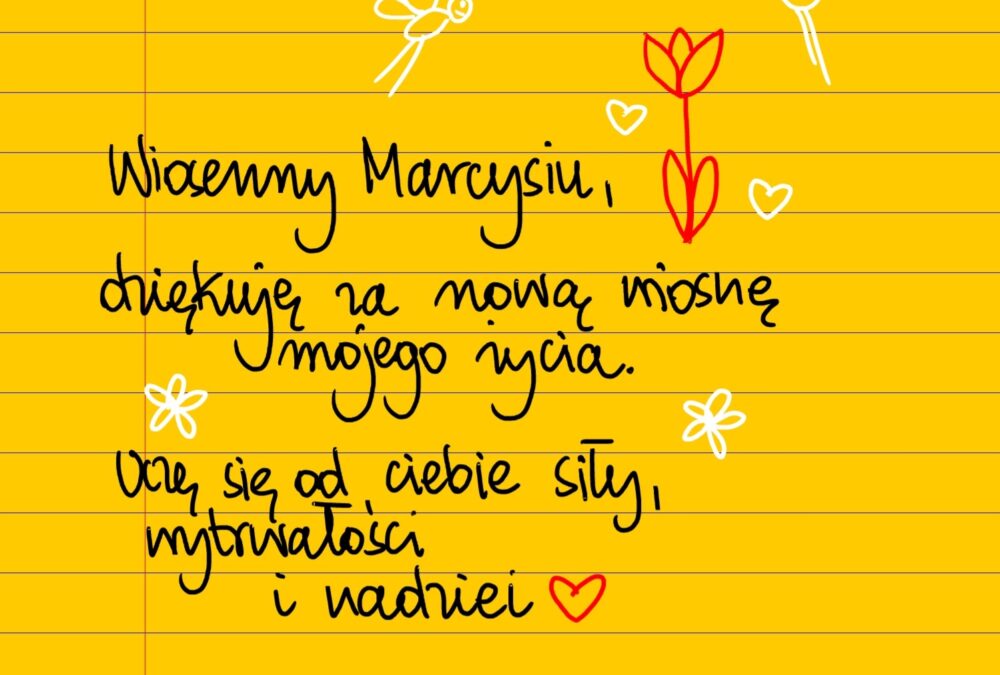 Wiosenny Marcysiu,
dziękuję za nową wiosnę
mojego życia.
Uczę się od ciebie siły,
wytrwałości
i nadziei